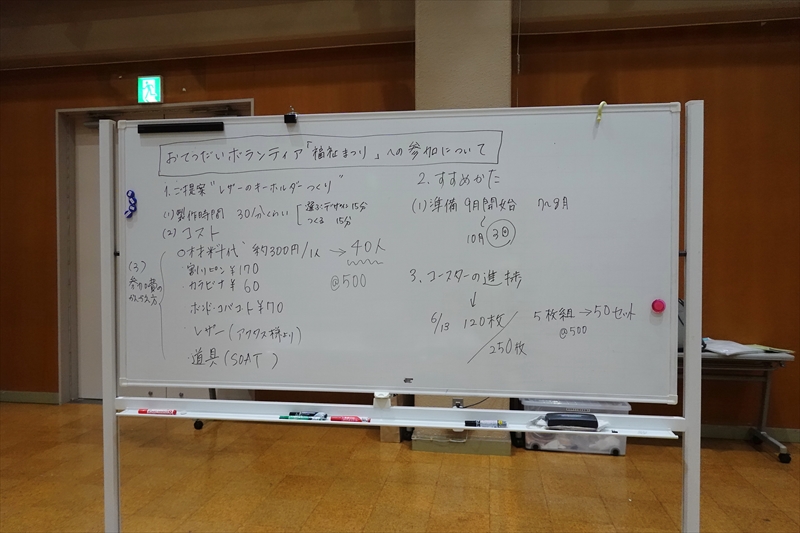 おてつだいボランティア「福祉まつり」への参加について
1. ご提案 "レザーのキーホルダーつくり"
(1) 製作時間 30分くらい [選ぶ・デザイン 15分
つくる 15分
(2) コスト
○材料代 約300円/1人 → 40人
・割りピン ¥170
@500
・カラビナ ¥60
・ボンド・コバコート ¥70
・レザー(アクタス様より)
・道具(SOAT )
(3)
参加費の
2. すすめかた
(1) 準備 9月開始 7〜9月
10月 3日
3. コースターの進捗
↓
6/13 120枚/250枚
5枚組 → 50セット
@500